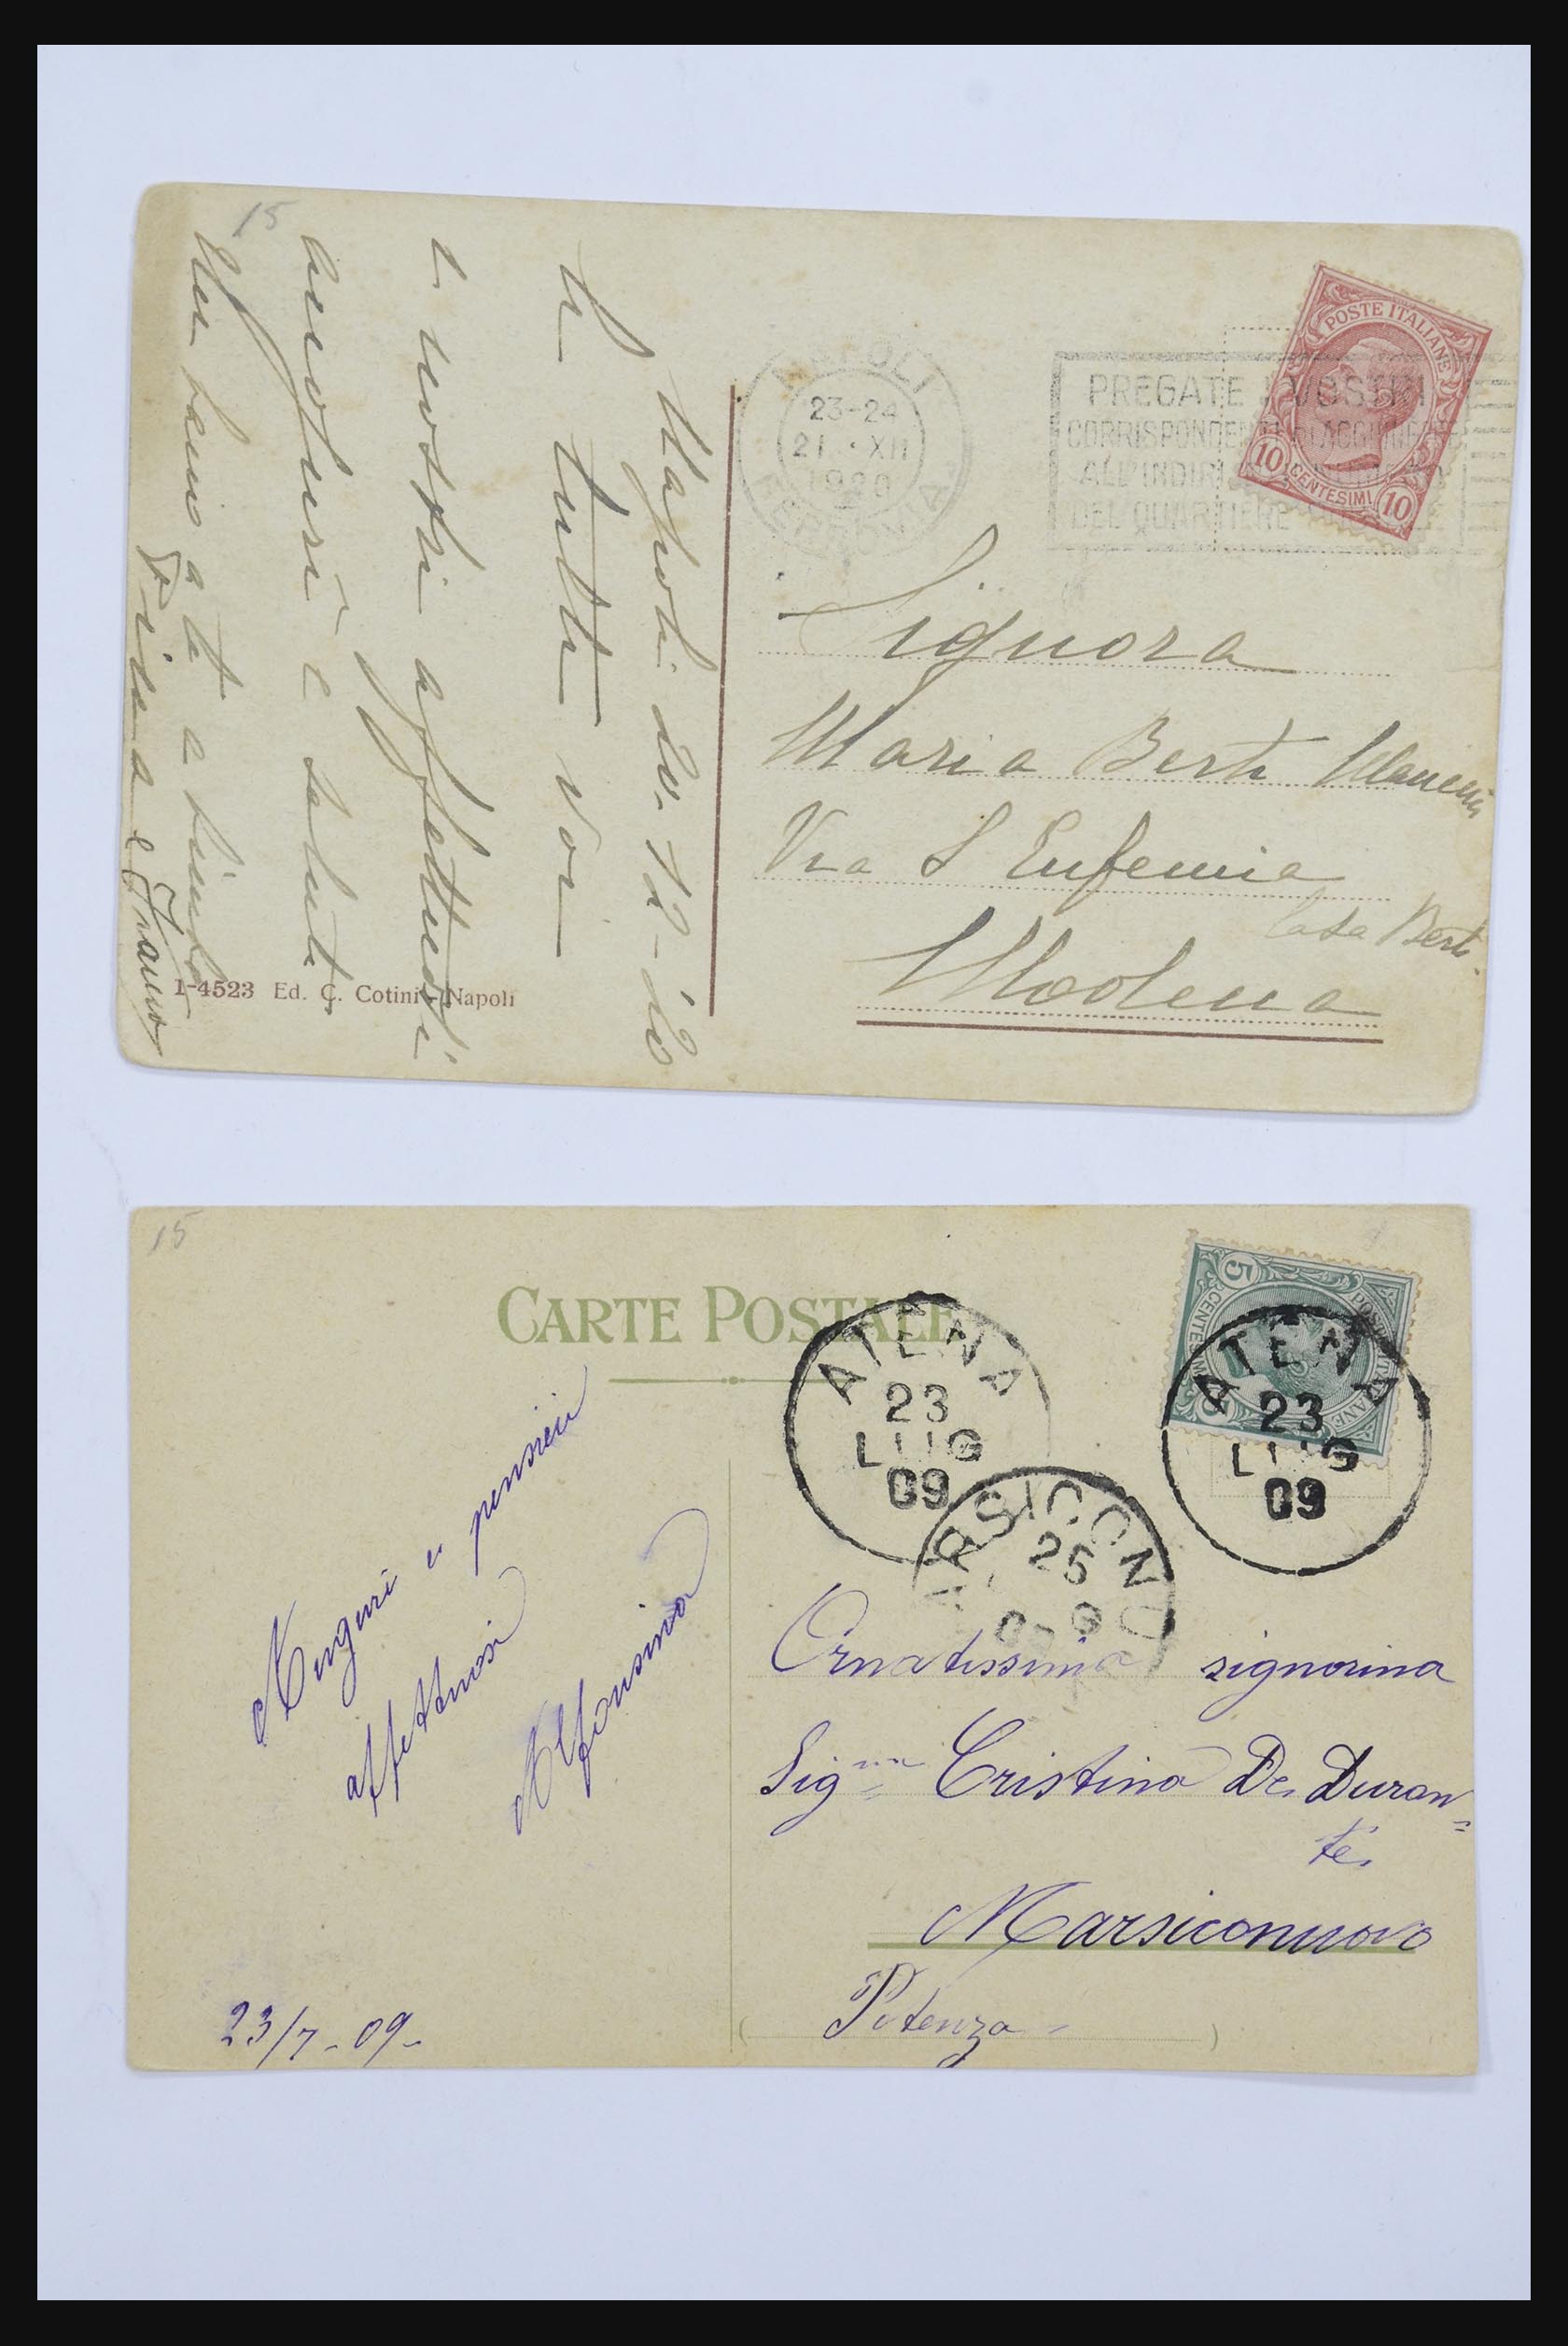 15
Napoli 20-12-20
A tutti voi
i nostri affettuosi
auguri e saluti
Un bacio a te e
Fina e Franco
1-4523 Ed. C. Cotini - Napoli
NAPOLI
23-24
21 · XII
1920
FERROVIA
PREGATE I VOSTRI
CORRISPONDENTI DI AGGIUNGERE
ALL'INDIRIZZO IL NUMERO
DEL QUARTIERE POSTALE
POSTE ITALIANE
10 CENTESIMI 10
Signora
Maria Berti
Via S Eufemia
Casa Berti
Modena
15
CARTE POSTALE
ATENA
23
LUG
09
POSTE ITALIANE
5 CENTESIMI 5
ATENA
23
LUG
09
MARSICONUOVO
25
09
Auguri e pensieri
affettuosi
Alfonsina
23/7-09-
Ornatissima signorina
Sig.na Cristina De Duran=
te
Marsiconuovo
(Potenza-)